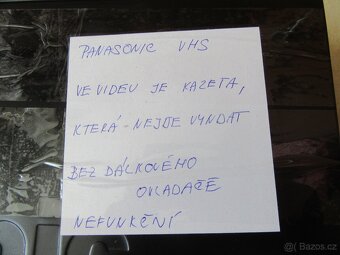 PANASONIC VHS
VE VIDEU JE KAZETA,
KTERÁ - NEJDE VYNDAT
BEZ DÁLKOVÉHO
OVLADAČE
NEFUNKČNÍ
Bazos.cz